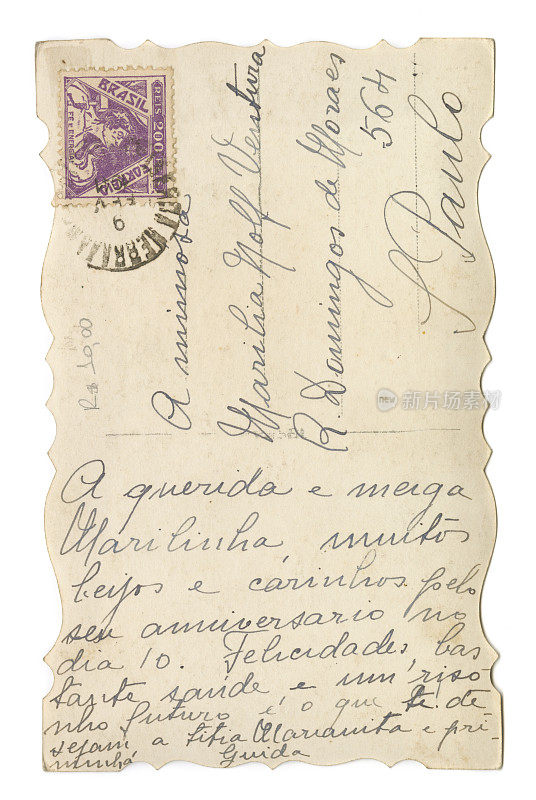 BRASIL
REIS 200 REIS
CORREIO
A mimosa
Marilia Wolf Ventura
R. Domingos de Moraes
564
S. Paulo
R$ 10,00
A querida e meiga
Marilinha, muitos
beijos e carinhos pelo
seu anniversario no
dia 10. Felicidades, bas
tante saúde e um riso
nho futuro é o que te de
sejam a titia Marianita e pri-
minha Guida
new 新图片市场
iStock